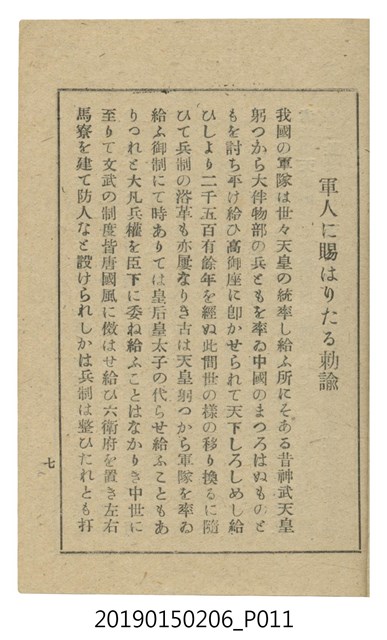 軍人に賜はりたる勅諭
我國の軍隊は世々天皇の統率し給ふ所にそある昔神武天皇
躬つから大伴物部の兵ともを率ゐ中國のまつろはぬものと
もを討ち平け給ひ高御座に卽かせられて天下しろしめし給
ひしより二千五百有餘年を經ぬ此間世の樣の移り換るに隨
ひて兵制の沿革も亦屢なりき古は天皇躬つから軍隊を率ゐ
給ふ御制にて時ありては皇后皇太子の代らせ給ふこともあ
りつれと大凡兵權を臣下に委ね給ふことはなかりき中世に
至りて文武の制度皆唐國風に倣はせ給ひ六衛府を置き左右
馬寮を建て防人なと設けられしかは兵制は整ひたれとも打
七
20190150206_P011